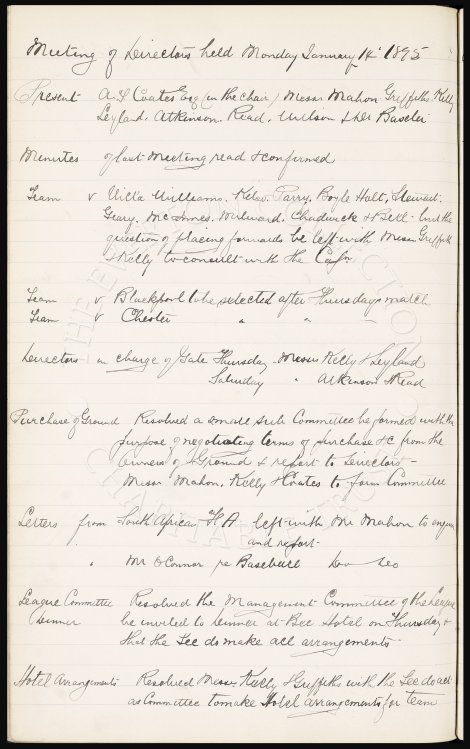 Meeting of Directors held Monday January 14th 1895
Present A. L. Coates Esq (in the chair) Messrs Mahon Griffiths Kelly
Leyland, Atkinson. Read, Wilson & Dr Baxter
Minutes of last Meeting read & confirmed
Team v Villa Williams. Kelso. Parry. Boyle Holt, Stewart.
Geary. McInnes. Milward. Chadwick & Bell - but the
question of placing forwards be left with Messrs Griffiths
& Kelly to consult with the Captn
Team v Blackpool to be selected after Thursdays match
Team v Chester " " -
Directors in charge of Gate Thursday Messrs Kelly & Leyland
Saturday " Atkinson & Read
Purchase of Ground Resolved a small sub Committee be formed with the
purpose of negotiating terms of purchase &c from the
owners of Ground & report to Directors -
Messrs Mahon, Kelly & Coates to form Committee
Letters from South African F A left with Mr Mahon to enquire
and report.
" Mr OConnor re Baseball do do
League Committee Resolved the Management Committee of the League
Dinner be invited to Dinner at Bee Hotel on Thursday &
that the Sec do make all arrangements -
Hotel Arrangements Resolved Messrs Kelly & Griffiths with the Sec do act
as Committee to make Hotel arrangements for team